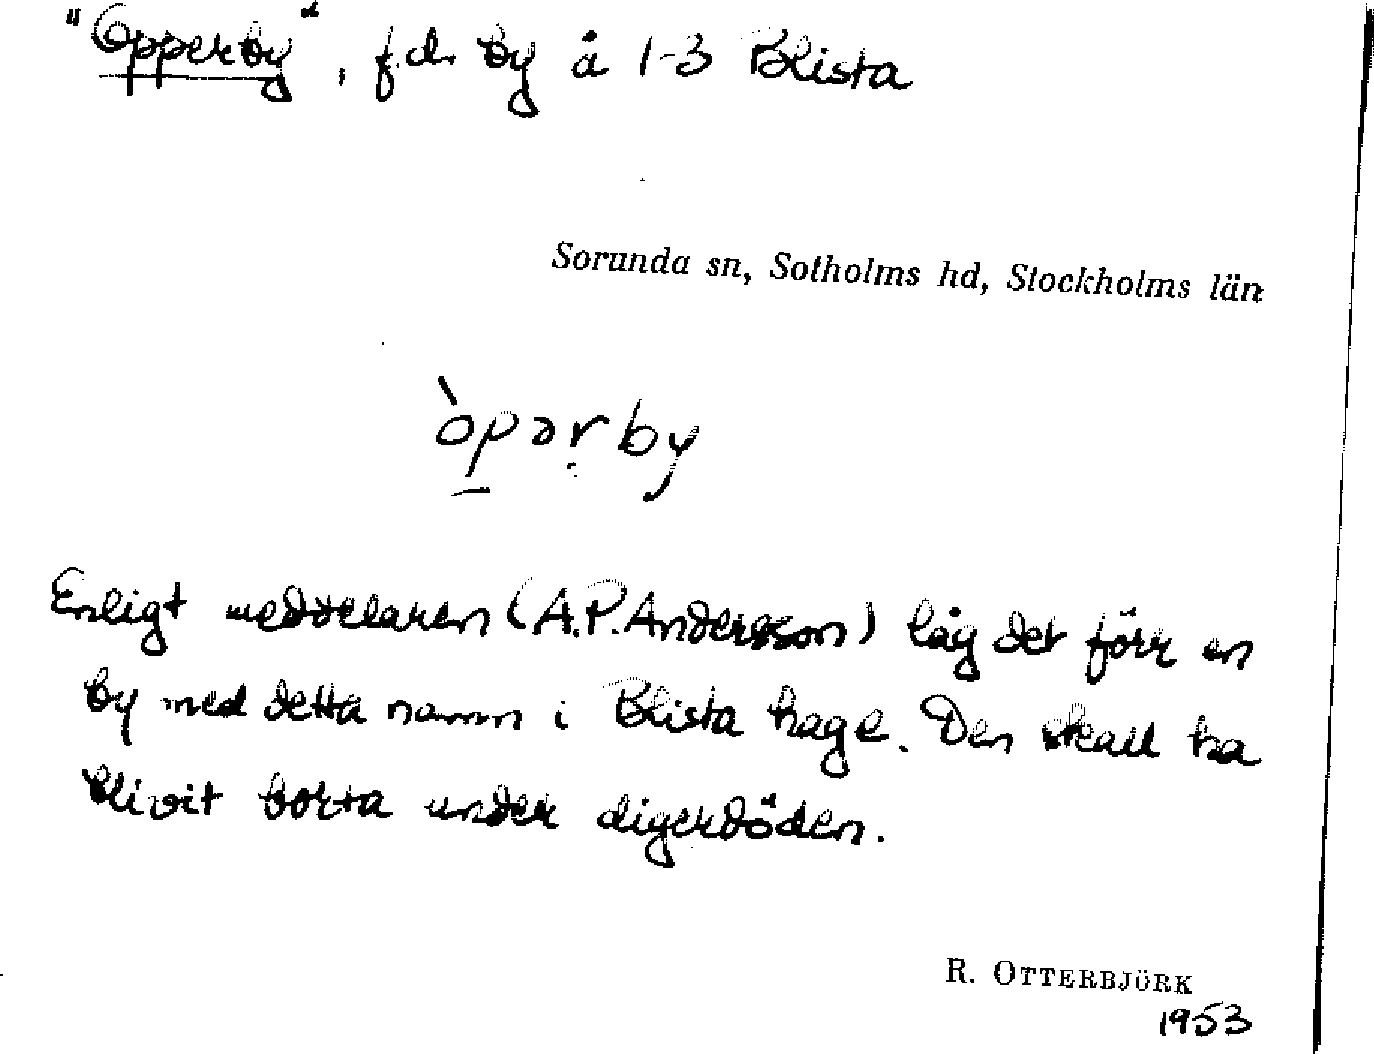 "Opperby", f.d. by å 1-3 Blista
Sorunda sn, Sotholms hd, Stockholms län
òpərby
Enligt meddelaren (A.P. Andersson) låg det förr en
by med detta namn i Blista hage. Den skall ha
blivit borta under digerdöden.
R. OTTERBJÖRK
1953